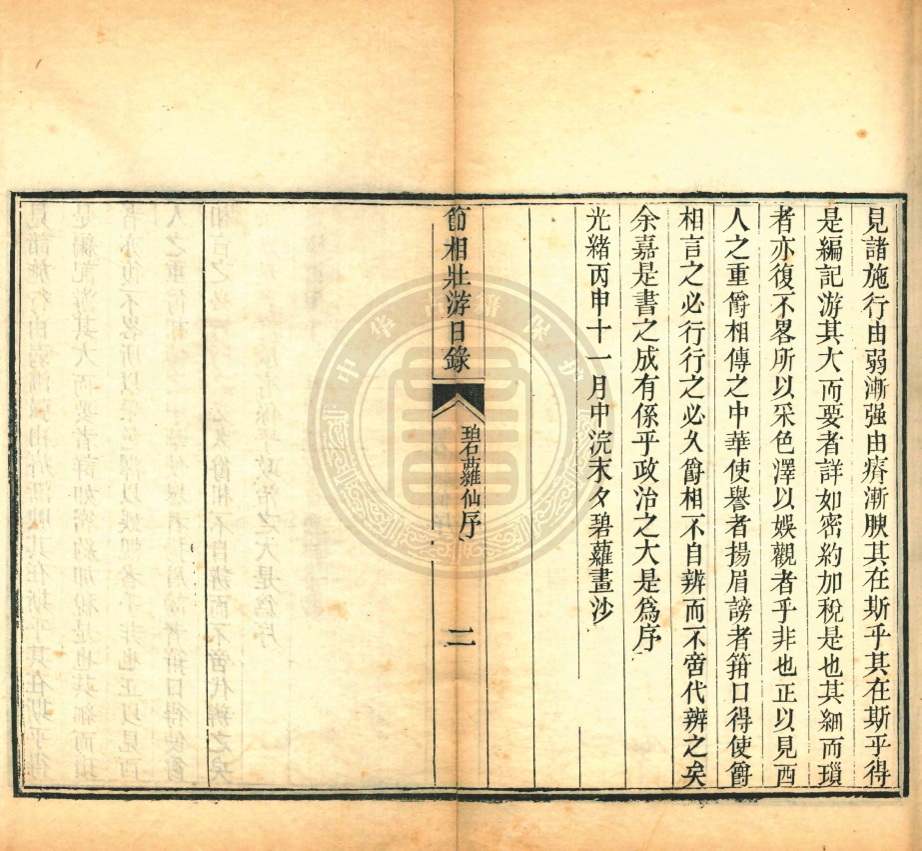 見諸施行由弱漸强由瘠漸腴其在斯乎其在斯乎得
是編記游其大而要者詳如密約加稅是也其細而瑣
者亦復不畧所以采色澤以娛觀者乎非也正以見西
人之重爵相傳之中華使譽者揚眉謗者箝口得使爵
相言之必行行之必久爵相不自辨而不啻代辨之矣
余嘉是書之成有係乎政治之大是爲序
光緒丙申十一月中浣末夕碧蘿畫沙
節相壯游日錄
碧蘿仙序
二
中华古籍保护